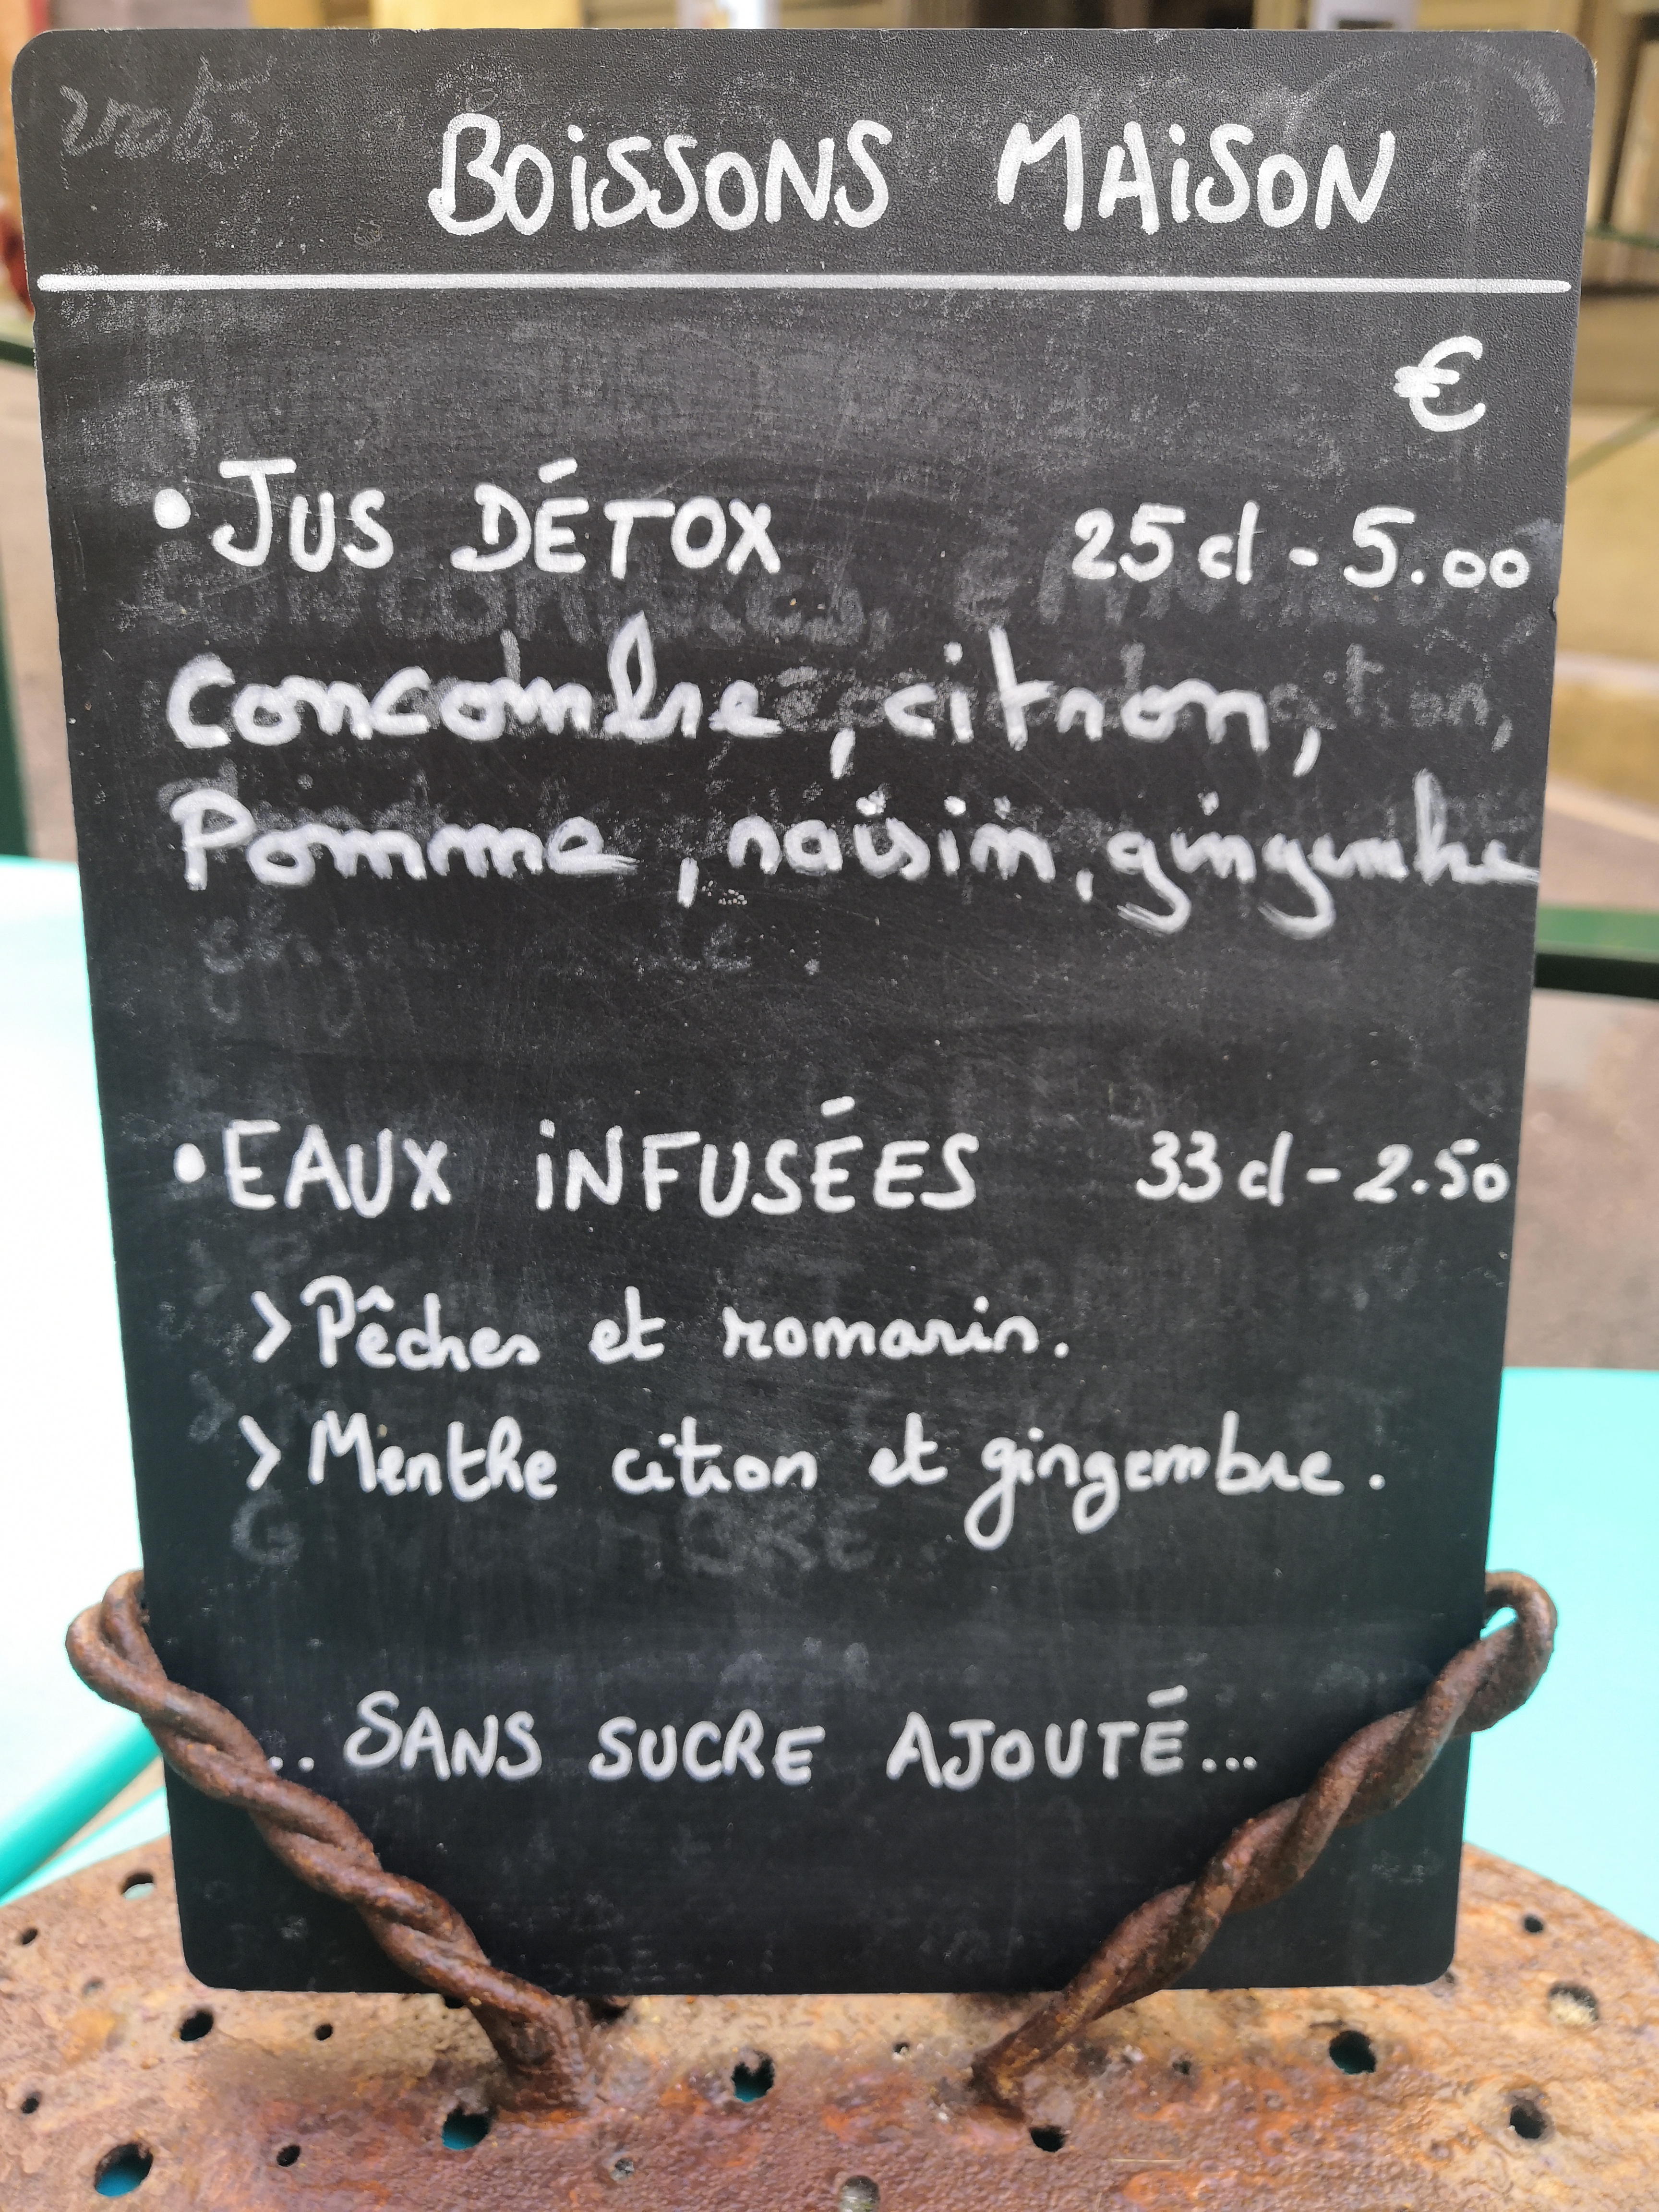 BOiSSONS MAiSON
€
• JUS DÉTOX 25 cl - 5.00
Concombre, citron,
Pomme, raisin, gingembre
• EAUX iNFUSÉES 33 cl - 2.50
> Pêches et romarin.
> Menthe citron et gingembre.
.. SANS SUCRE AJOUTÉ...